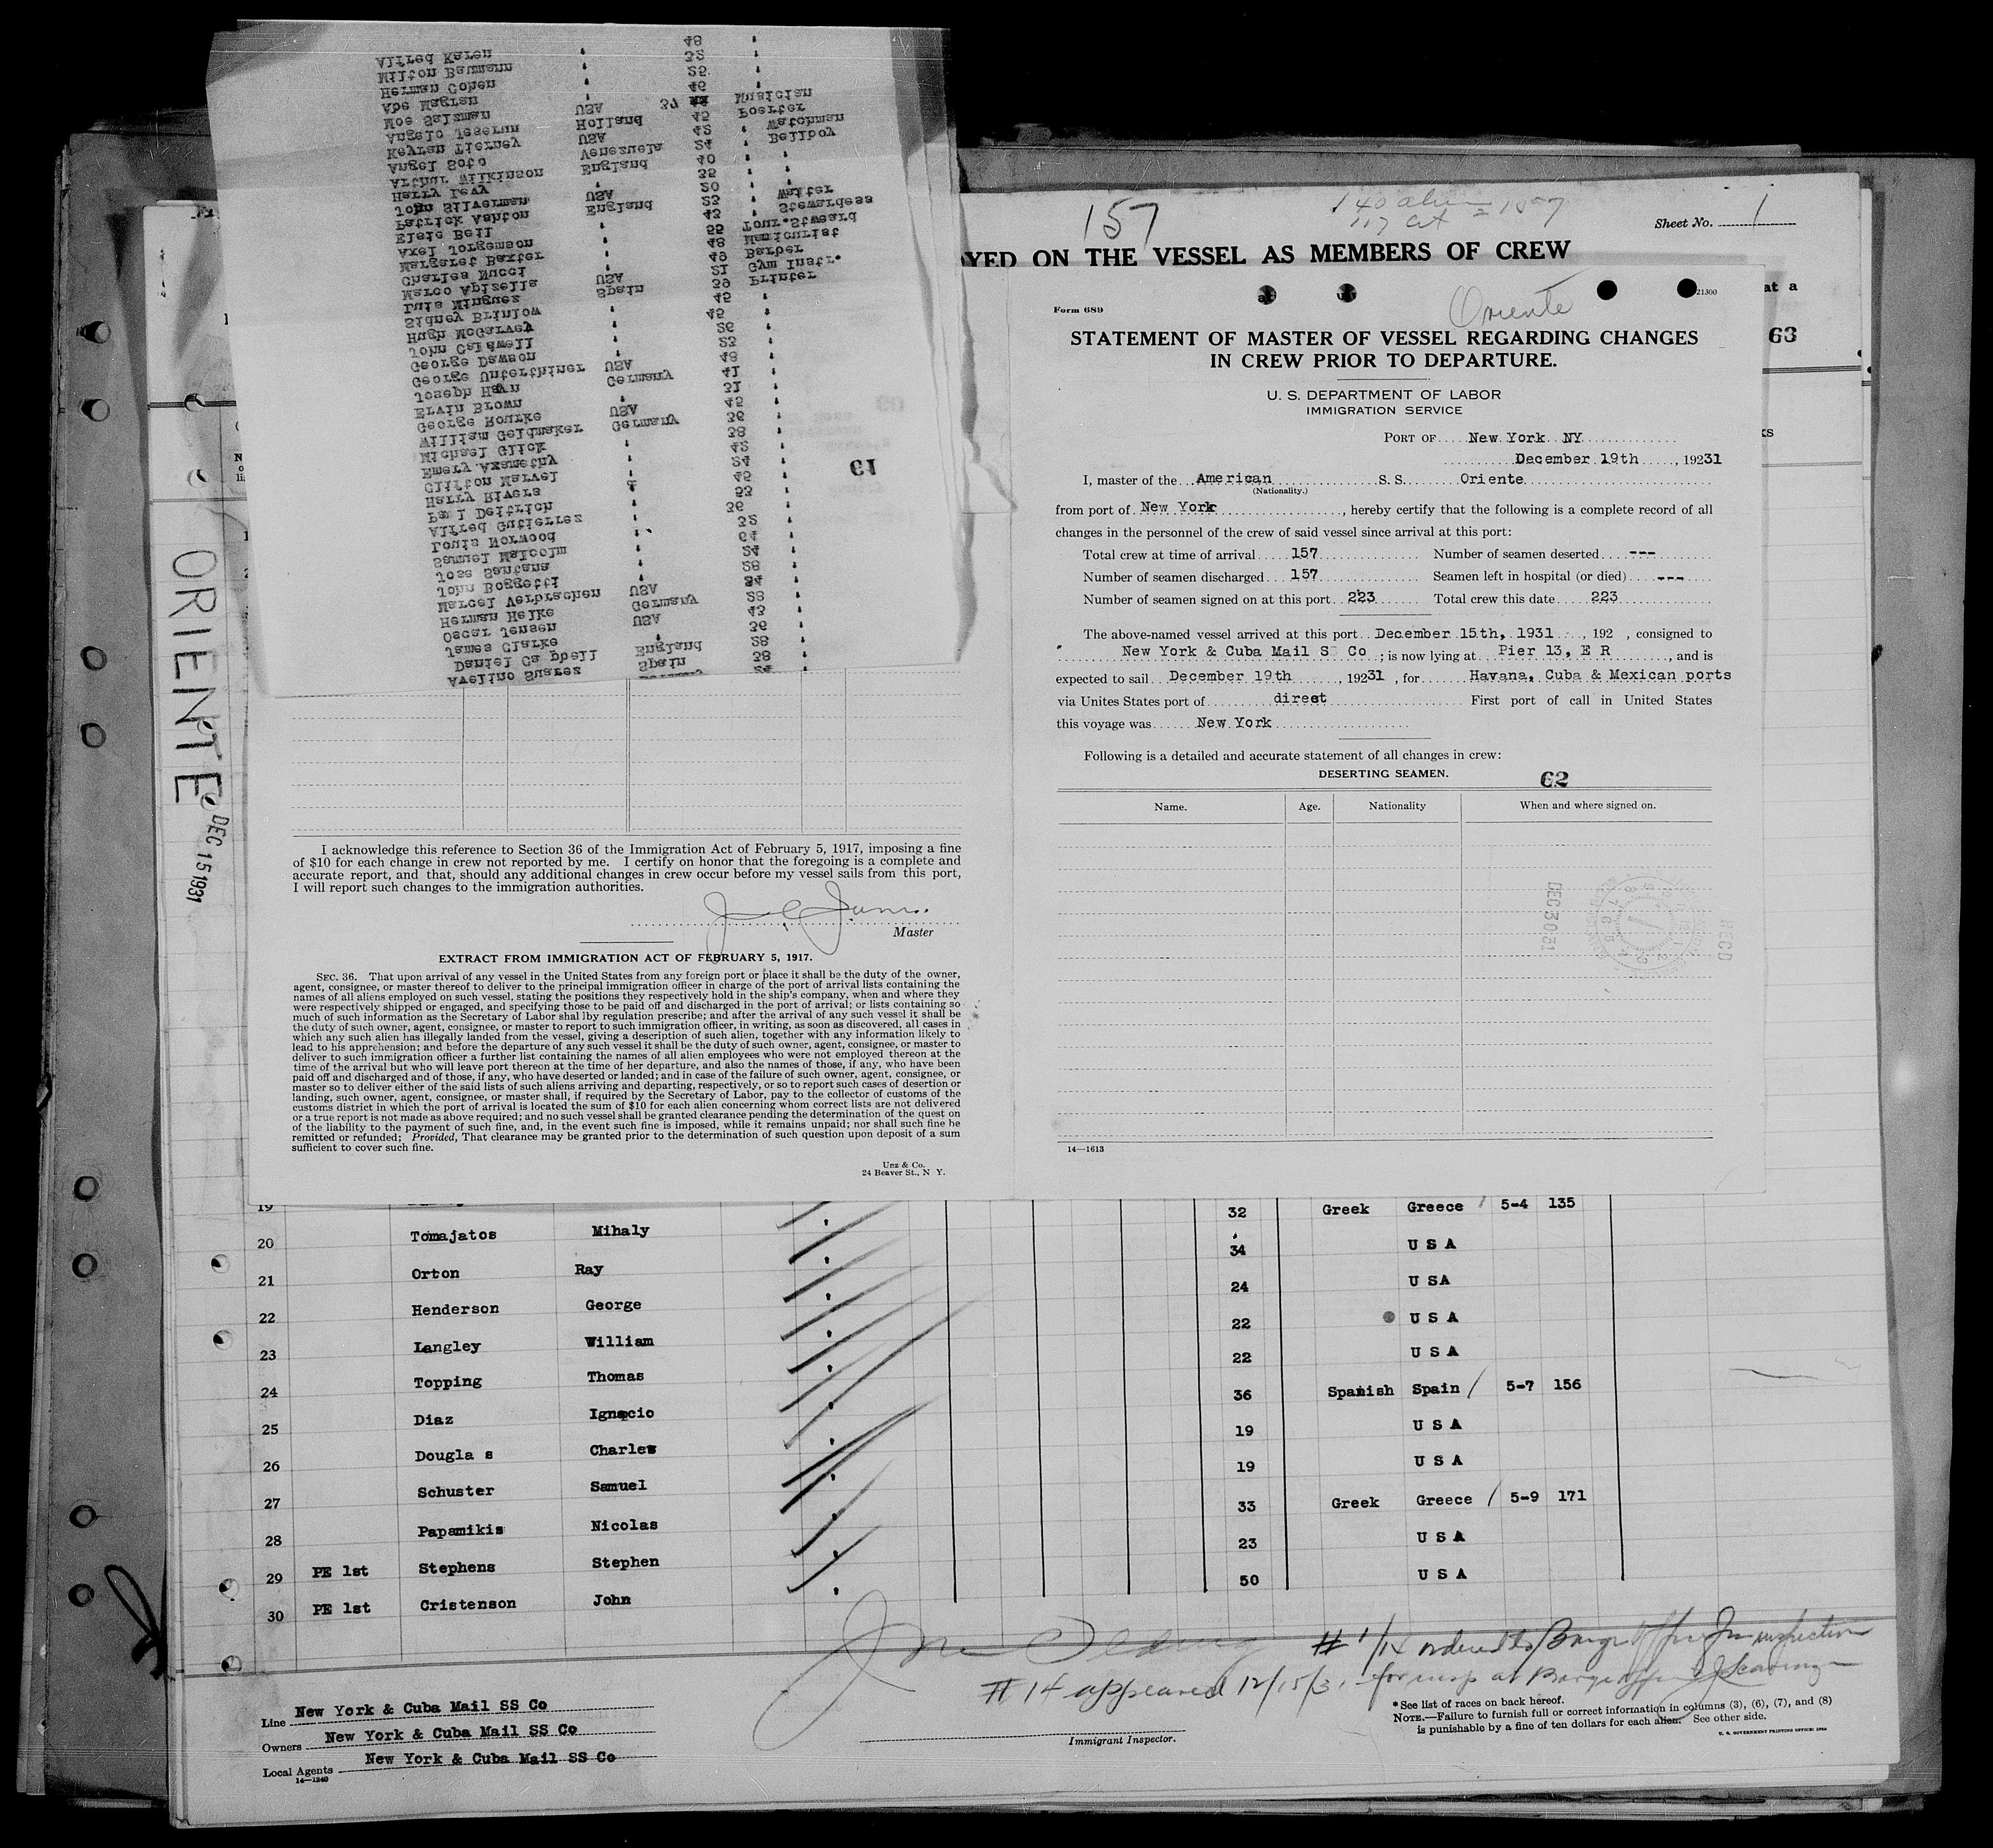 Alfred Karen " 48 "
Milton Baumann " 32 "
Herman Cohen " 25 "
Abe Magran " 46 "
Moe Salzman USA 37 Musician
Angelo Jeserun Holland 45 Poerter
Keyran Tierney USA 42 " Watchman
Angel Soto Venezuela 24 " Bellboy
Arthur Wilkinson England 40 " "
Harry Levy " 35 " "
John Silverman USA 20 " "
Patrick Ashton England 23 " Waiter
Elsie Bell " 43 " Stewardess
Axel Jorgenson " 55 Tour.Stweard
Margaret Baxter " 48 Manicurist
Charles Mucci " 49 Barber
Marco Apizella USA 21 Gym Instr.
Luis Minguez Spain 39 Printer
Sidney Brinlow " 45 "
Hugh McGarvey " 45 "
John Caldwell " 26 "
George Dawson " 23 "
George Unterthiner USA 48 "
Joseph Hayn Germany 41 "
Ervin Brown " 31 "
George Rourke USA 45 "
William Geldmaker Germany 36 "
Michael Glick " 38 "
Emery Axamethy " 42 "
Clifton Marvel " 24 "
Harry Rivers " 45 "
Paul Deitrich " 53 "
Alfred Gutierrez " 36 "
Louis Norwood " 32 "
Samuel Malcolm " 64 "
Jose Santana " 24 "
John Boggetti " 28 "
Marcel Verbrachen USA 34 "
Herman Heike Germany 28 "
Oscar Jensen USA 43 "
James Clarke " 36 "
Daniel Ca pbell England 28 "
Avelino Suarez Spain 38 "
24
61
157
= 157
Sheet No. 1
YED ON THE VESSEL AS MEMBERS OF CREW
at a
63
ks
Oriente
21300
Form 689
STATEMENT OF MASTER OF VESSEL REGARDING CHANGES
IN CREW PRIOR TO DEPARTURE.
U. S. DEPARTMENT OF LABOR
IMMIGRATION SERVICE
PORT OF New York NY
December 19th, 19231
I, master of the American S. S. Oriente
(Nationality.)
from port of New York, hereby certify that the following is a complete record of all
changes in the personnel of the crew of said vessel since arrival at this port:
Total crew at time of arrival 157 Number of seamen deserted ---
Number of seamen discharged 157 Seamen left in hospital (or died) ---
Number of seamen signed on at this port 223 Total crew this date 223
The above-named vessel arrived at this port December 15th, 1931, 192 , consigned to
New York & Cuba Mail S Co; is now lying at Pier 13, E R, and is
expected to sail December 19th, 19231, for Havana, Cuba & Mexican ports
via Unites States port of direct First port of call in United States
this voyage was New York
Following is a detailed and accurate statement of all changes in crew:
DESERTING SEAMEN.
62
Name. Age. Nationality When and where signed on.
DEC 30 31
REC'D
14—1613
ORIENTE
DEC 15 1931
I acknowledge this reference to Section 36 of the Immigration Act of February 5, 1917, imposing a fine
of $10 for each change in crew not reported by me. I certify on honor that the foregoing is a complete and
accurate report, and that, should any additional changes in crew occur before my vessel sails from this port,
I will report such changes to the immigration authorities.
Master
EXTRACT FROM IMMIGRATION ACT OF FEBRUARY 5, 1917.
SEC. 36. That upon arrival of any vessel in the United States from any foreign port or place it shall be the duty of the owner,
agent, consignee, or master thereof to deliver to the principal immigration officer in charge of the port of arrival lists containing the
names of all aliens employed on such vessel, stating the positions they respectively hold in the ship's company, when and where they
were respectively shipped or engaged, and specifying those to be paid off and discharged in the port of arrival; or lists containing so
much of such information as the Secretary of Labor shal lby regulation prescribe; and after the arrival of any such vessel it shall be
the duty of such owner, agent, consignee, or master to report to such immigration officer, in writing, as soon as discovered, all cases in
which any such alien has illegally landed from the vessel, giving a description of such alien, together with any information likely to
lead to his apprehension; and before the departure of any such vessel it shall be the duty of such owner, agent, consignee, or master to
deliver to such immigration officer a further list containing the names of all alien employees who were not employed thereon at the
time of the arrival but who will leave port thereon at the time of her departure, and also the names of those, if any, who have been
paid off and discharged and of those, if any, who have deserted or landed; and in case of the failure of such owner, agent, consignee, or
master so to deliver either of the said lists of such aliens arriving and departing, respectively, or so to report such cases of desertion or
landing, such owner, agent, consignee, or master shall, if required by the Secretary of Labor, pay to the collector of customs of the
customs district in which the port of arrival is located the sum of $10 for each alien concerning whom correct lists are not delivered
or a true report is not made as above required; and no such vessel shall be granted clearance pending the determination of the quest on
of the liability to the payment of such fine, and, in the event such fine is imposed, while it remains unpaid; nor shall such fine be
remitted or refunded; Provided, That clearance may be granted prior to the determination of such question upon deposit of a sum
sufficient to cover such fine.
Unz & Co.
24 Beaver St., N Y.
19
20 Tomajatos Mihaly " 32 Greek Greece / 5-4 135
21 Orton Ray " 34 U S A
22 Henderson George " 24 U SA
23 Langley William " 22 U S A
24 Topping Thomas " 22 U S A
25 Diaz Ignacio " 36 Spanish Spain / 5-7 156
26 Dougla s Charles " 19 U S A
27 Schuster Samuel " 19 U S A
28 Papamikis Nicolas " 33 Greek Greece / 5-9 171
29 PE 1st Stephens Stephen " 23 U S A
30 PE 1st Cristenson John " 50 U S A
# 1/14 ordered to Barge Office for inspection
# 14 appeared 12/15/31 for insp at Barge Office
Immigrant Inspector.
Line New York & Cuba Mail SS Co
Owners New York & Cuba Mail SS Co
Local Agents New York & Cuba Mail SS Co
14—1240
*See list of races on back hereof.
NOTE.—Failure to furnish full or correct information in columns (3), (6), (7), and (8)
is punishable by a fine of ten dollars for each alien. See other side.
U. S. GOVERNMENT PRINTING OFFICE: 1930